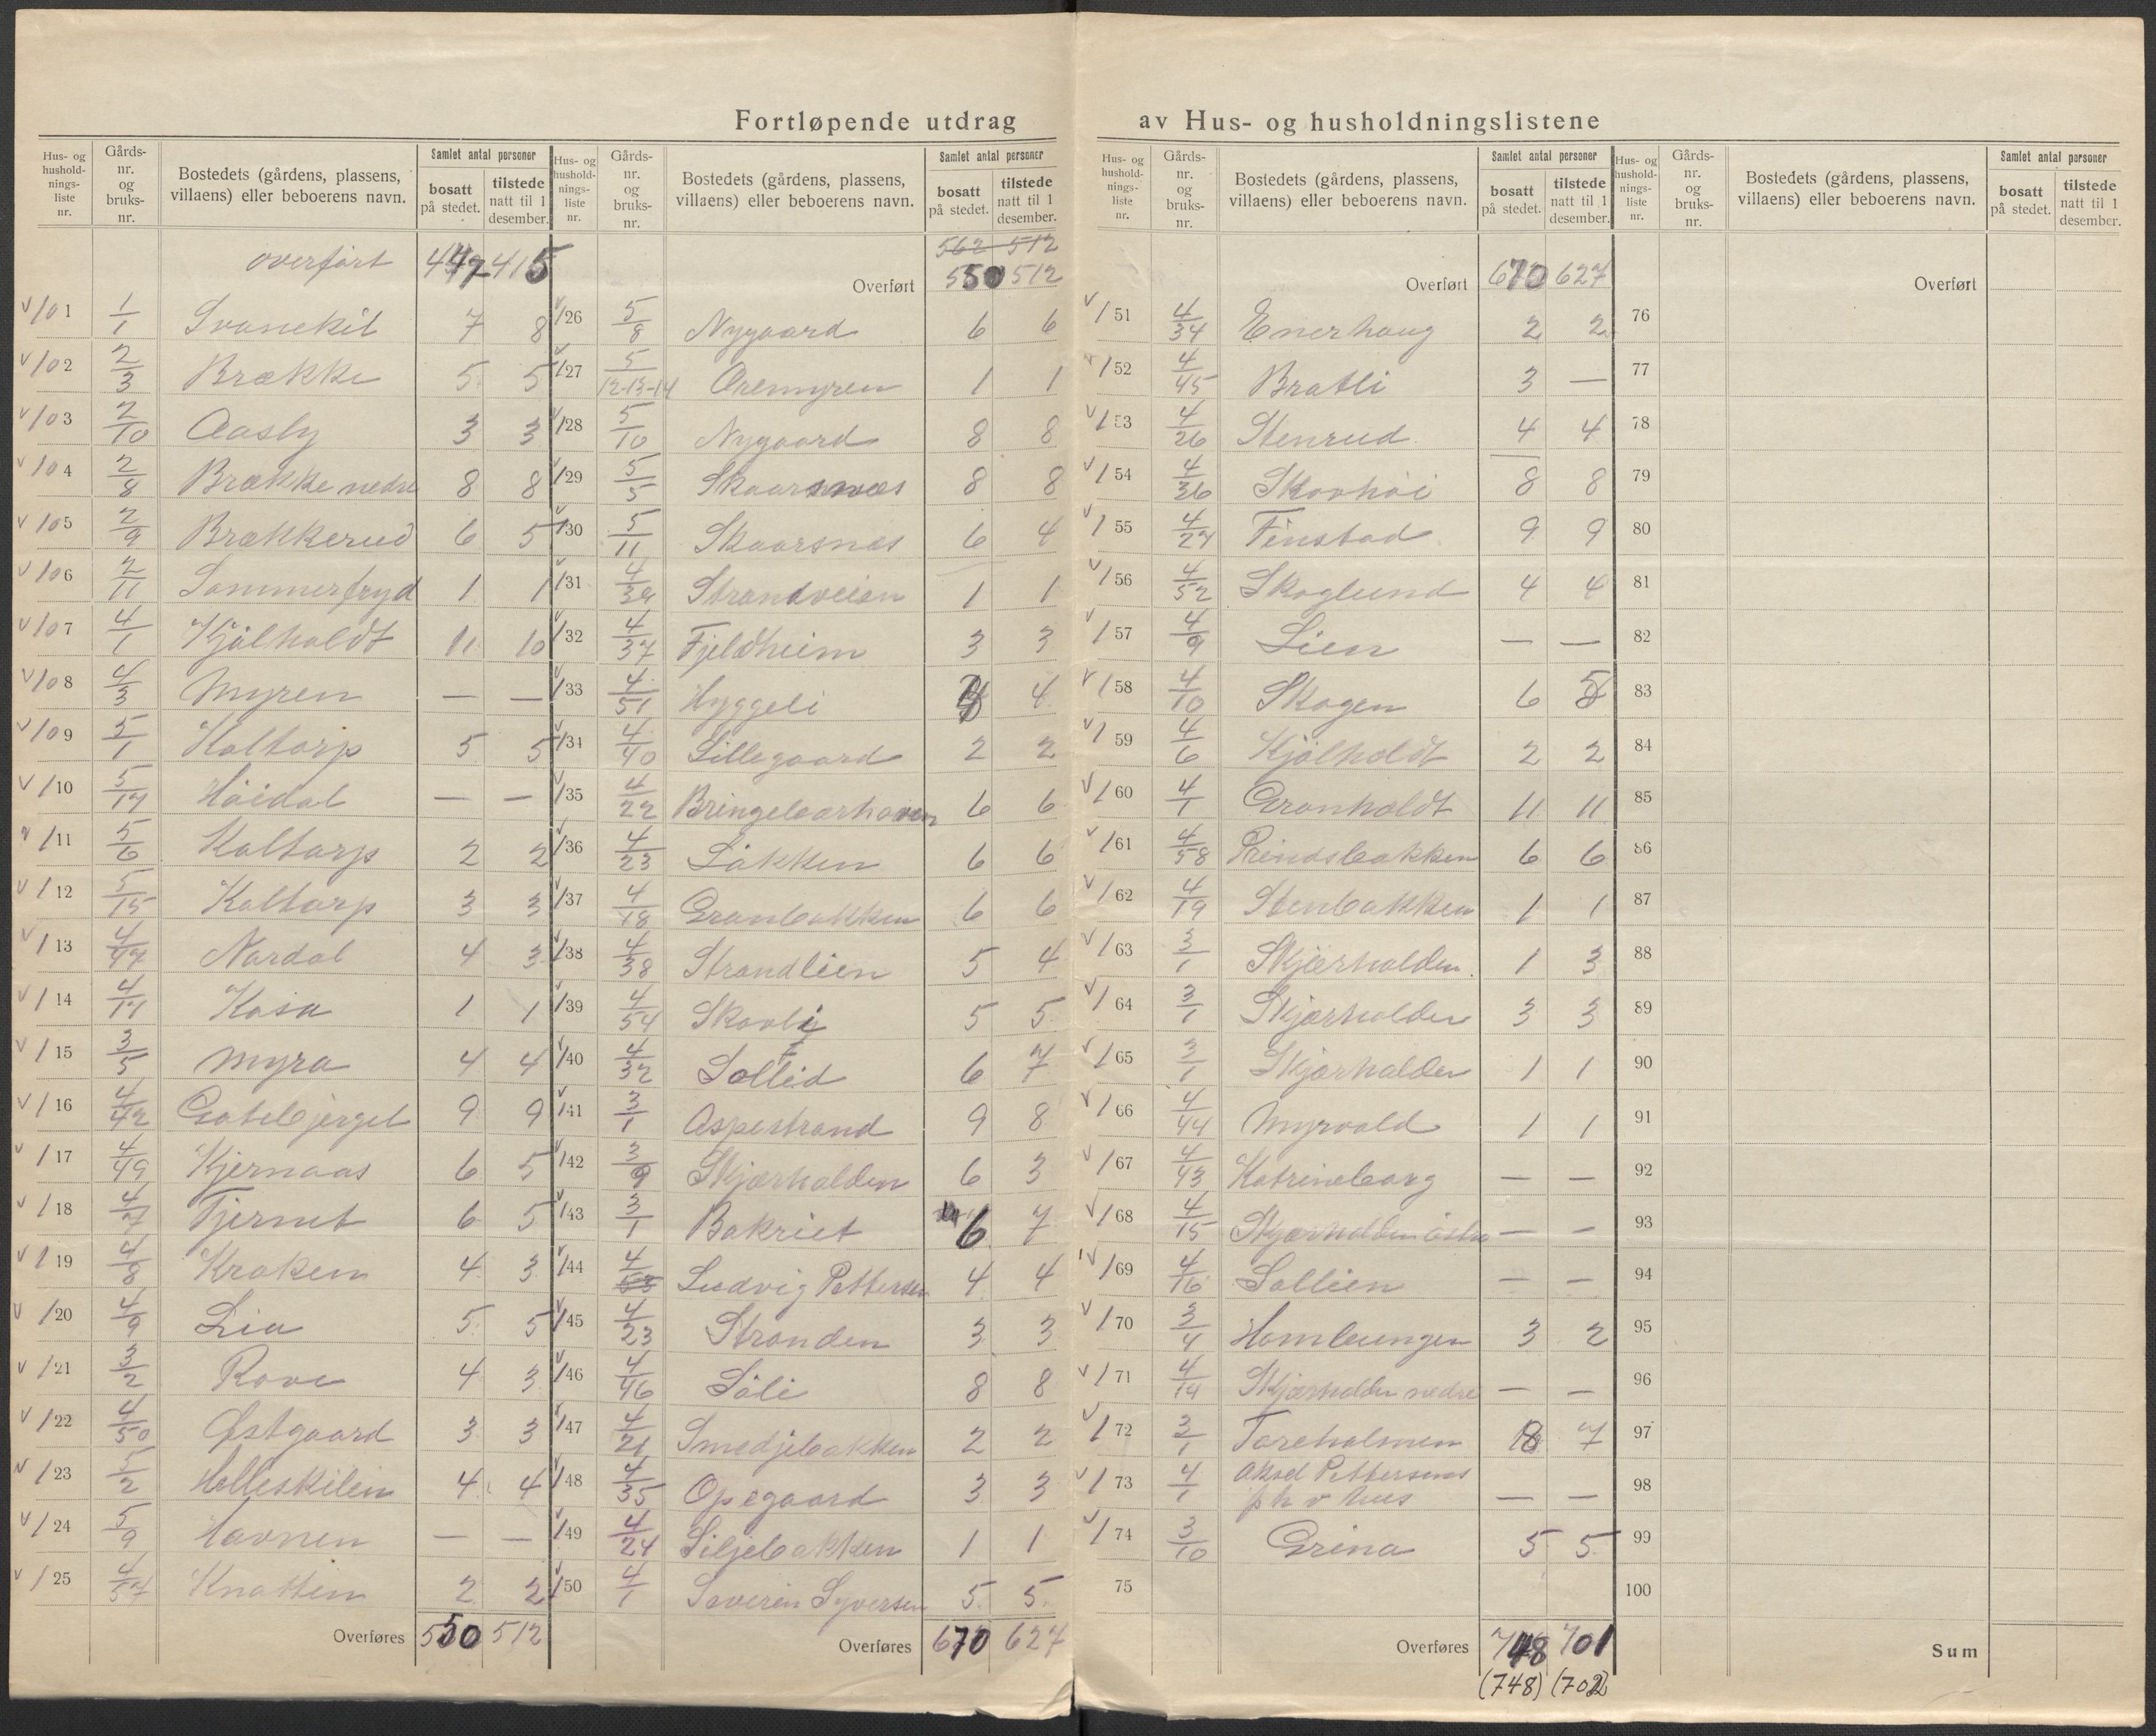 Fortløpende utdrag av Hus- og husholdningslistene
Hus- og hushold-nings-liste nr. | Gårds-nr. og bruks-nr. | Bostedets (gårdens, plassens, villaens) eller beboerens navn. | Samlet antal personer | bosatt på stedet. | tilstede natt til 1 desember.
overført 447 415
101 1/1 Svanekil 7 8
102 2/3 Brække 5 5
103 2/10 Aasly 3 3
104 2/8 Brække nedre 8 8
105 2/9 Brækkerud 6 5
106 2/11 Sommerfryd 1 1
107 4/1 Kjølholdt 11 10
108 4/3 Myren — —
109 5/1 Holtorp 5 5
110 5/17 Høidal — —
111 5/6 Holtorp 2 2
112 5/15 Holtorp 3 3
113 4/47 Nordal 4 3
114 4/11 Kasa 1 1
115 3/5 Myra 4 4
116 4/42 Gatebjerget 9 9
117 4/49 Kjernaas 6 5
118 4/7 Tjernet 6 5
119 4/8 Kroken 4 3
120 4/9 Lia 5 5
121 3/2 Rove 4 3
122 4/50 Østgaard 3 3
123 5/2 Holleskilen 4 4
124 5/9 Havnen — —
125 4/57 Knatten 2 2
Overføres 550 512
Hus- og hushold-nings-liste nr. | Gårds-nr. og bruks-nr. | Bostedets (gårdens, plassens, villaens) eller beboerens navn. | Samlet antal personer | bosatt på stedet. | tilstede natt til 1 desember.
562 512
Overført 550 512
126 5/8 Nygaard 6 6
127 5/12-13-14 Oremyren 1 1
128 5/10 Nygaard 8 8
129 5/5 Skaarsnæs 8 8
130 5/11 Skaarsnes 6 4
131 4/39 Strandveien 1 1
132 4/37 Fjeldheim 3 3
133 4/51 Hyggeli 4
134 4/40 Lillegaard 2 2
135 4/22 Bringebærhaven 6 6
136 4/23 Løkken 6 6
137 4/18 Granbakken 6 6
138 4/38 Strandlien 5 4
139 4/54 Skovli 5 5
140 4/32 Sollid 6 7
141 3/1 Aspestrand 9 8
142 3/9 Skjærhalden 6 3
143 3/1 Bakriet 6 7
144 4/53 Ludvig Pettersen 4 4
145 4/23 Stranden 3 3
146 4/46 Søli 8 8
147 4/21 Smedjebakken 2 2
148 4/35 Opegaard 3 3
149 4/24 Siljebakken 1 1
150 4/1 Severin Syversen 5 5
Overføres 670 627
Hus- og hushold-nings-liste nr. | Gårds-nr. og bruks-nr. | Bostedets (gårdens, plassens, villaens) eller beboerens navn. | Samlet antal personer | bosatt på stedet. | tilstede natt til 1 desember.
Overført 670 627
151 4/34 Enerhaug 2 2
152 4/45 Bratli 3 —
153 4/26 Stenrud 4 4
154 4/36 Skovhøi 8 8
155 4/27 Finstad 9 9
156 4/52 Skoglund 4 4
157 4/9 Lien — —
158 4/10 Skogen 6 5
159 4/6 Kjølholdt 2 2
160 4/1 Granholdt 11 11
161 4/58 Prindsbakken 6 6
162 4/19 Stenbakken 1 1
163 3/1 Skjærhalden 1 3
164 3/1 Skjærhalden 3 3
165 3/1 Skjærhalden 1 1
166 4/44 Myrvold 1 1
167 4/43 Katrineborg — —
168 4/15 Skjærhalden østre — —
169 4/16 Sollien — —
170 3/4 Homlungen 3 2
171 4/14 Skjærhalden nedre — —
172 3/1 Tareholmen 8 7
173 4/1 Aksel Pettersens
ph v hus — —
174 3/10 Grina 5 5
75
Overføres 748 701
(748) (702)
Hus- og hushold-nings-liste nr. | Gårds-nr. og bruks-nr. | Bostedets (gårdens, plassens, villaens) eller beboerens navn. | Samlet antal personer | bosatt på stedet. | tilstede natt til 1 desember.
Overført
76
77
78
79
80
81
82
83
84
85
86
87
88
89
90
91
92
93
94
95
96
97
98
99
100
Sum